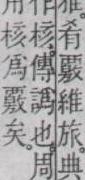 雅。肴覈維旅。典
作核。傳譌也。周
用核爲覈矣。